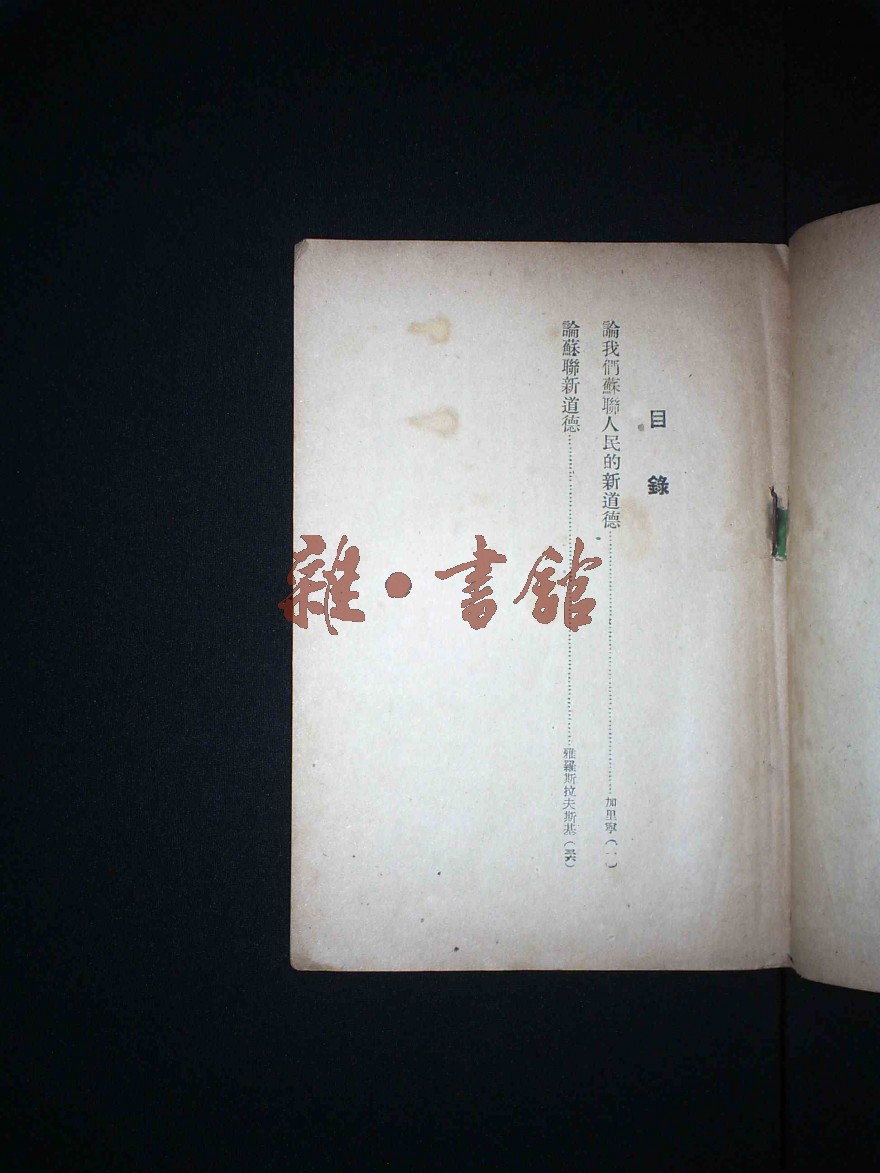 目錄
論我們蘇聯人民的新道德……加里寧（一）
論蘇聯新道德……雅羅斯拉夫斯基
雜·書館